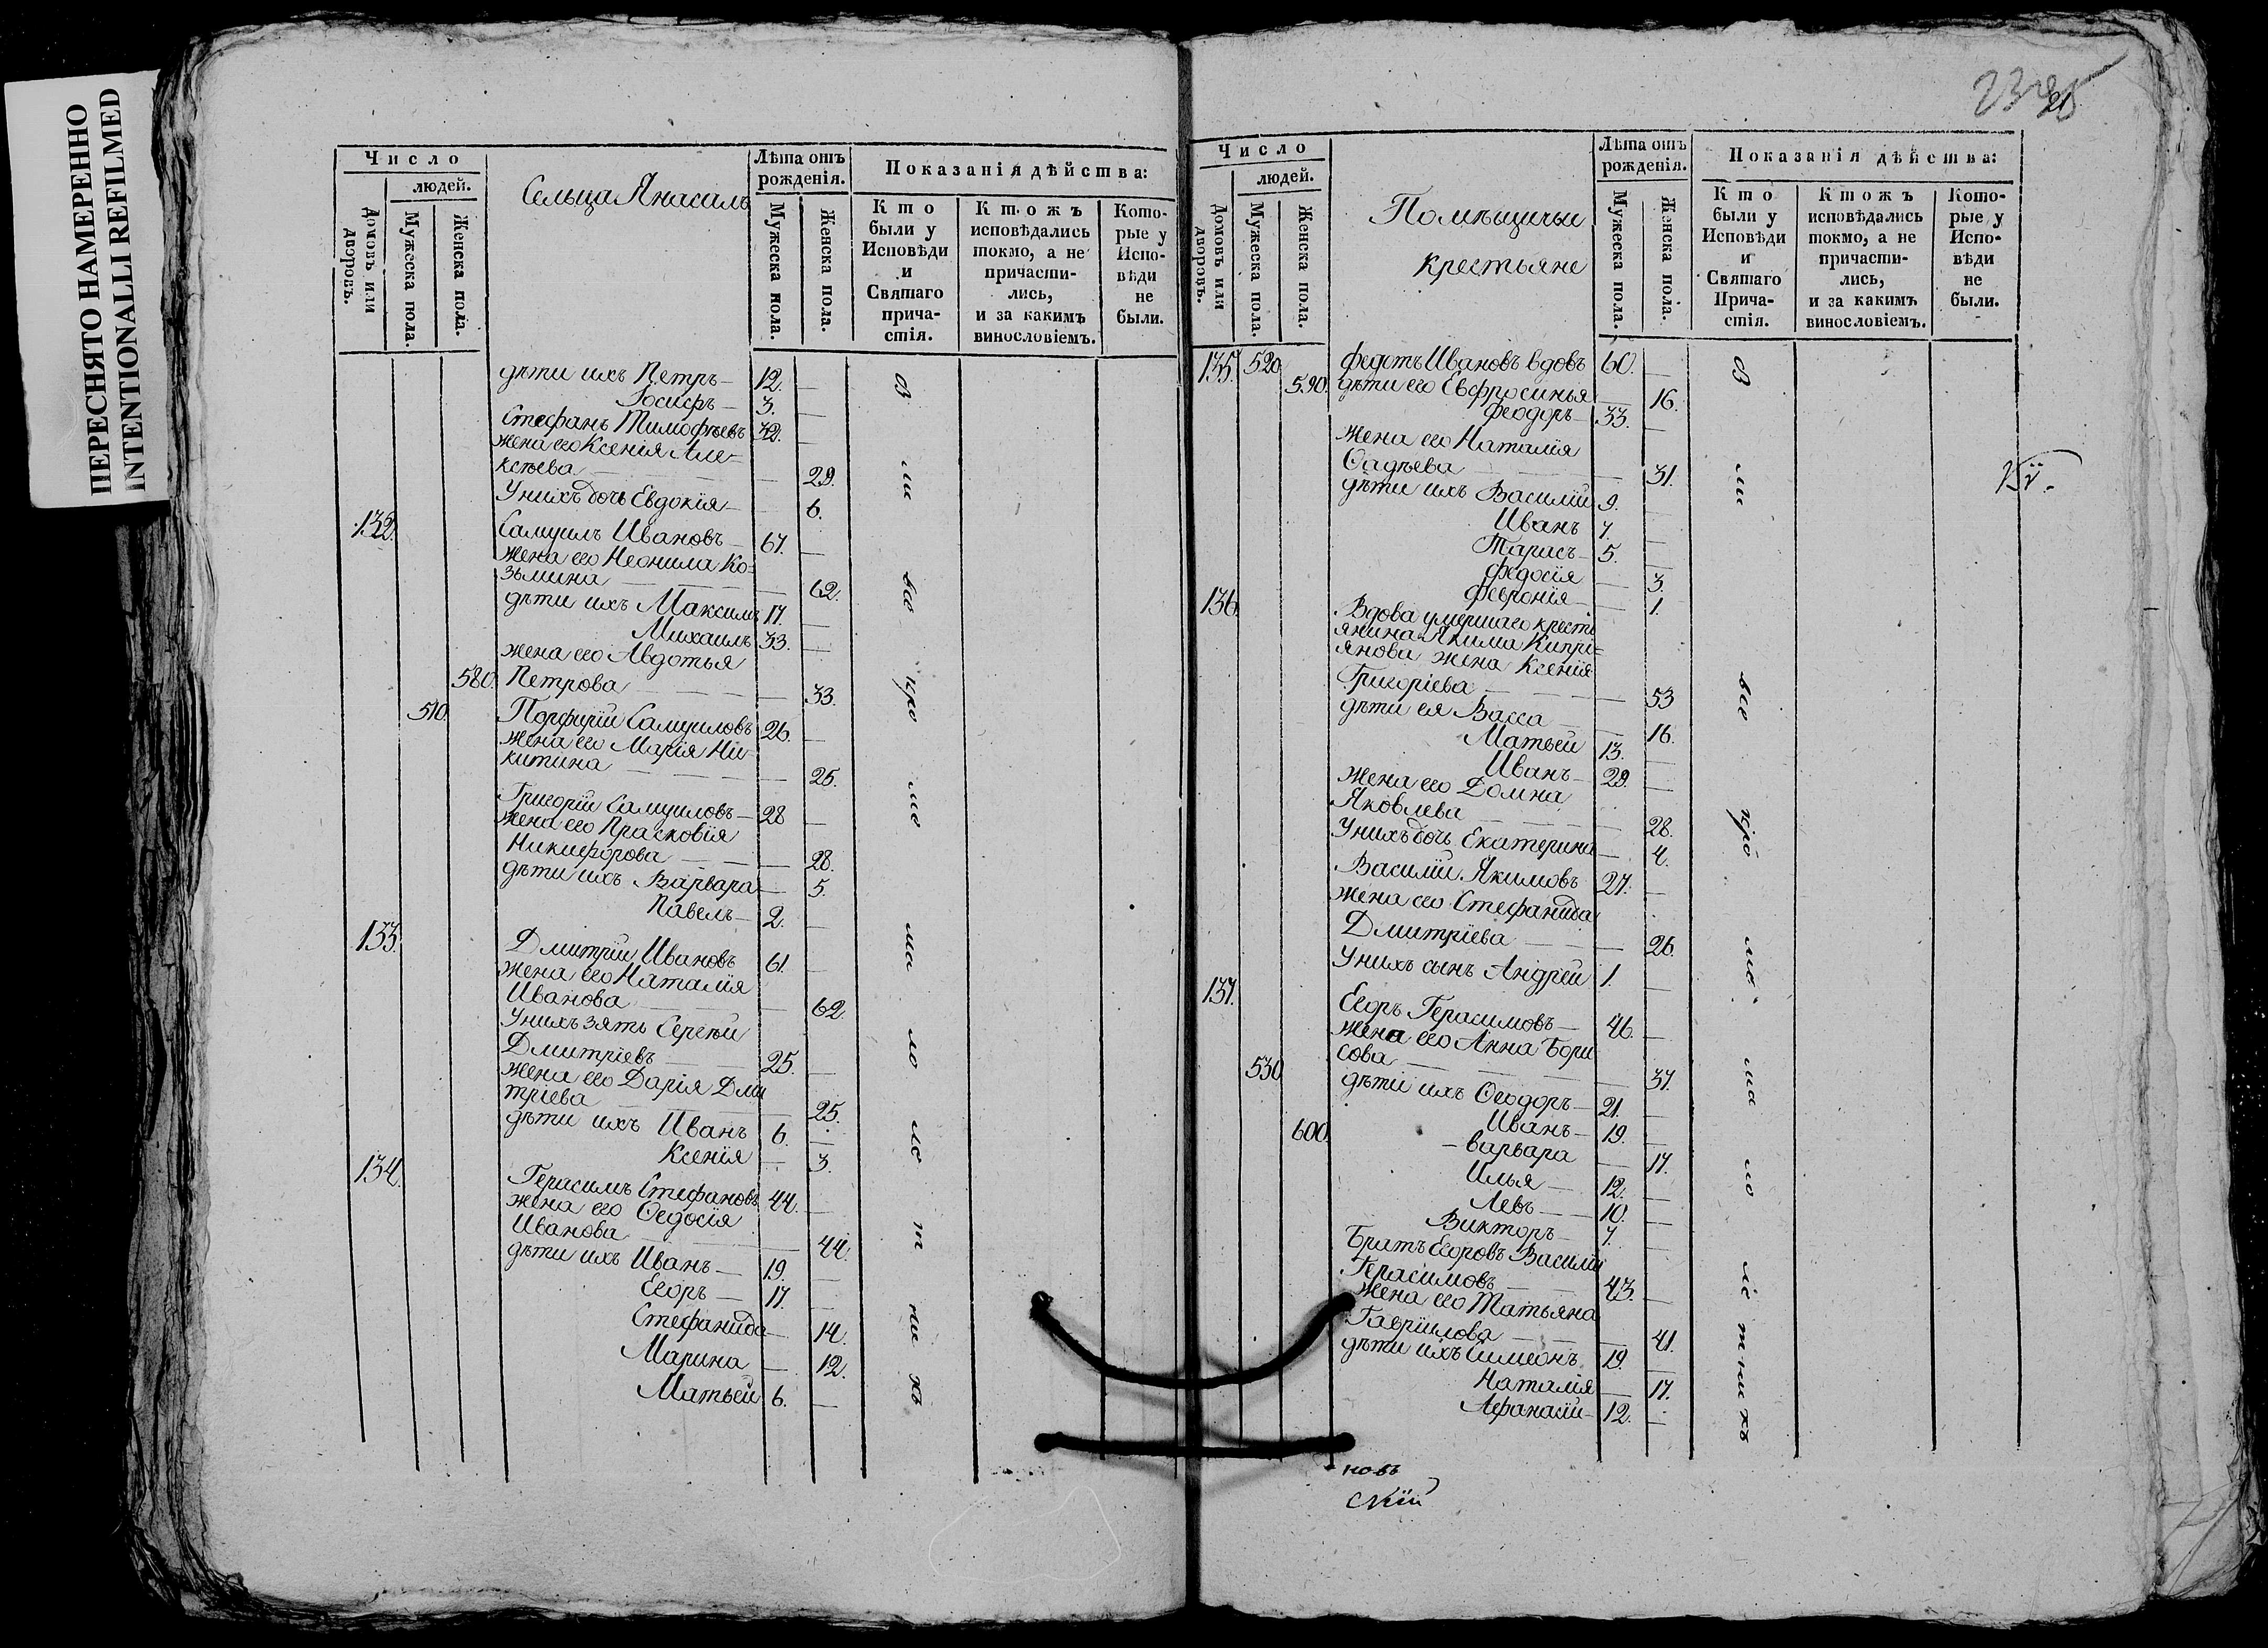 ПЕРЕСНЯТО НАМЕРЕННО
INTENTIONALLI REFILMED
Число
людей.
Домовъ или дворовъ.
Мужеска пола.
Женска пола.
Сельца Янасаль
Лѣта отъ рожденія.
Мужеска пола.
Женска пола.
Показанія дѣйства:
Кто были у Исповѣди и Святаго причастія.
Ктожъ исповѣдались токмо, а не причастились, и за какимъ винословіемъ.
Которые у Исповѣди не были.
дѣти ихъ Петръ — 12. —
Іосифъ — 3. —
Стефанъ Тимофѣевъ 32. —
жена его Ксенія Але=
ксѣева — 29.
У нихъ дочь Евдокія — 6.
132. Самуилъ Ивановъ — 67. —
жена его Неонила Ко=
зьмина — 62.
дѣти ихъ Максимъ 17. —
Михаилъ 33. —
жена его Авдотья
580. Петрова — 33.
510. Порфирій Самуиловъ 26. —
жена его Марія Ни=
китина — 25.
Григорій Самуиловъ — 28 —
жена его Прасковія
Никифорова — 28.
дѣти ихъ Варвара — 5.
Павелъ — 2. —
133. Дмитрій Ивановъ 61. —
жена его Наталія
Иванова — 62
У нихъ зять Сергѣй
Дмитріевъ 25. —
жена его Дарія Дми
тріева — 25.
дѣти ихъ Иванъ 6. —
Ксенія — 3.
134. Герасимъ Стефановъ 44. —
жена его Ѳедосія
Иванова — 44.
дѣти ихъ Иванъ — 19. —
Егоръ — 17. —
Стефанида — 14.
Марина — 12.
Матвей 6. —
21
Число
людей.
Домовъ или дворовъ.
Мужеска пола.
Женска пола.
Помѣщичьи
крестьяне
Лѣта отъ рожденія.
Мужеска пола.
Женска пола.
Показанія дѣйства:
Кто были у Исповѣди и Святаго Причастія.
Ктожъ исповѣдались токмо, а не причастились, и за какимъ винословіемъ.
Которые у Исповѣди не были.
135. 520. Федотъ Ивановъ вдовъ 60. —
590. дѣти его Евфросинья — 16.
Феодоръ — 33. —
жена его Наталія
Ѳадѣева — 31.
дѣти ихъ Василій 9. —
Иванъ 7. —
Тарасъ — 5. —
Федосія — 3.
Февронія — 1.
136. Вдова умершаго кресть
янина Якима Кипрі=
янова жена Ксенія
Григоріева — 53
дѣти ея Васса — 16.
Матвей 13. —
Иванъ — 29. —
жена его Домна
Яковлева — 28.
У нихъ дочь Екатерина — 4.
Василій Якимовъ 27. —
жена его Стефанида
Дмитріева — 26.
У нихъ сынъ Андрей 1. —
137. Егоръ Герасимовъ — 46. —
жена его Анна Бори
сова — 37.
530 дѣти ихъ Ѳеодоръ — 21. —
600. Иванъ — 19. —
— варвара — 17.
Илья — 12. —
Левъ — 10. —
Викторъ — 7. —
Братъ Егоровъ Василій
Герасимовъ — 43. —
жена его Татьяна
Гавріилова — 41.
дѣти ихъ Симеонъ 19. —
Наталія — 17.
Афанасій — 12. —
новъ
скій